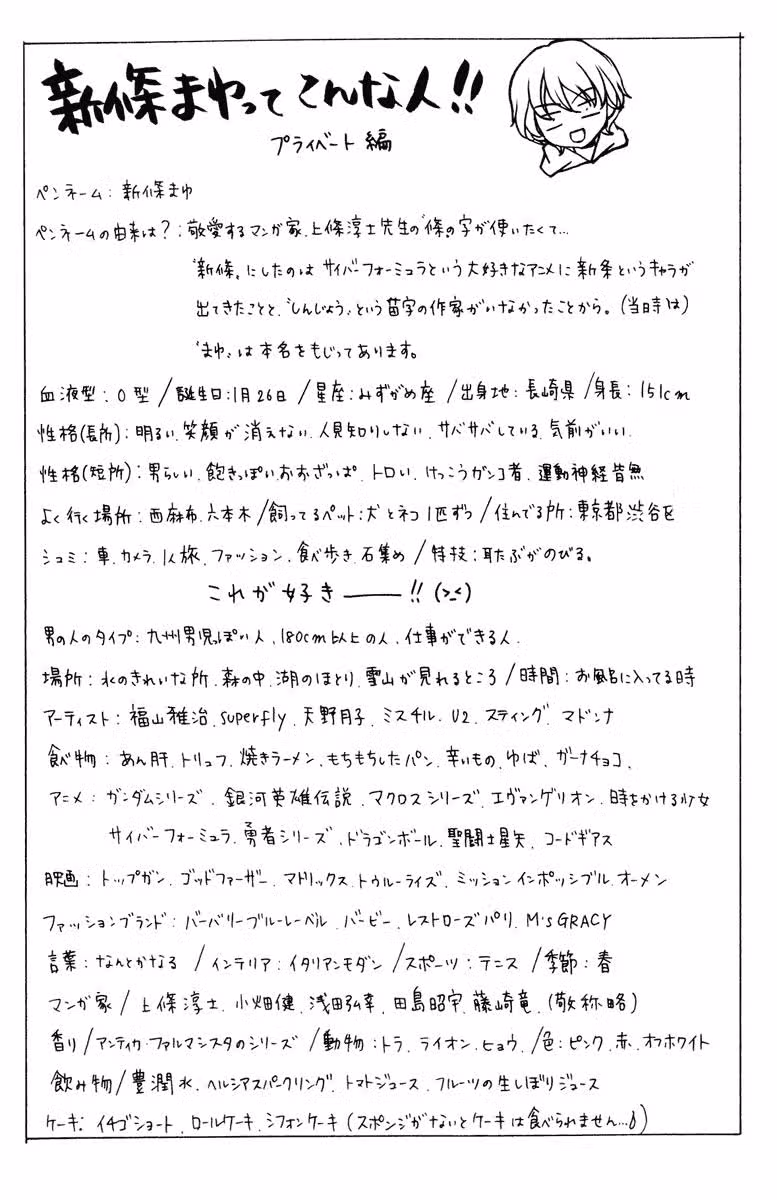 新條まゆって こんな人!!
プライベート編
ペンネーム：新條まゆ
ペンネームの由来は？：敬愛するマンガ家、上條淳士先生の"條"の字が使いたくて…
"新條"にしたのは サイバーフォーミュラという大好きなアニメに新条というキャラが
出てきたことと、"しんじょう"という苗字の作家がいなかったことから。(当時は)
"まゆ"は本名をもじってあります。
血液型：O型 / 誕生日：1月26日 / 星座：みずがめ座 / 出身地：長崎県 / 身長：151cm
性格(長所)：明るい、笑顔が消えない、人見知りしない、サバサバしている、気前がいい。
性格(短所)：男らしい、飽きっぽい、おおざっぱ、トロい、けっこうガンコ者、運動神経皆無
よく行く場所：西麻布、六本木 / 飼ってるペット：犬とネコ1匹ずつ / 住んでる所：東京都渋谷区
シュミ：車、カメラ、1人旅、ファッション、食べ歩き、石集め / 特技：耳たぶがのびる。
これが好き――!! (>_<)
男の人のタイプ：九州男児っぽい人、180cm以上の人、仕事ができる人。
場所：水のきれいな所、森の中、湖のほとり、雪山が見れるところ / 時間：お風呂に入ってる時
アーティスト：福山雅治、superfly、天野月子、ミスチル、U2、スティング、マドンナ
食べ物：あん肝、トリュフ、焼きラーメン、もちもちしたパン、辛いもの、ゆば、ガーナチョコ、
アニメ：ガンダムシリーズ、銀河英雄伝説、マクロスシリーズ、エヴァンゲリオン、時をかける少女
サイバーフォーミュラ、勇者シリーズ、ドラゴンボール、聖闘士星矢、コードギアス
映画：トップガン、ゴッドファーザー、マトリックス、トゥルーライズ、ミッションインポッシブル、オーメン
ファッションブランド：バーバリーブルーレーベル、バービー、レストローズパリ、M'S GRACY
言葉：なんとかなる / インテリア：イタリアンモダン / スポーツ：テニス / 季節：春
マンガ家 / 上條淳士、小畑健、浅田弘幸、田島昭宇、藤崎竜、(敬称略)
香り / アンティカ・ファルマシスタのシリーズ / 動物：トラ、ライオン、ヒョウ、/ 色：ピンク、赤、オフホワイト
飲み物 / 豊潤水、ヘルシアスパークリング、トマトジュース、フルーツの生しぼりジュース
ケーキ：イチゴショート、ロールケーキ、シフォンケーキ (スポンジがないとケーキは食べられません…)